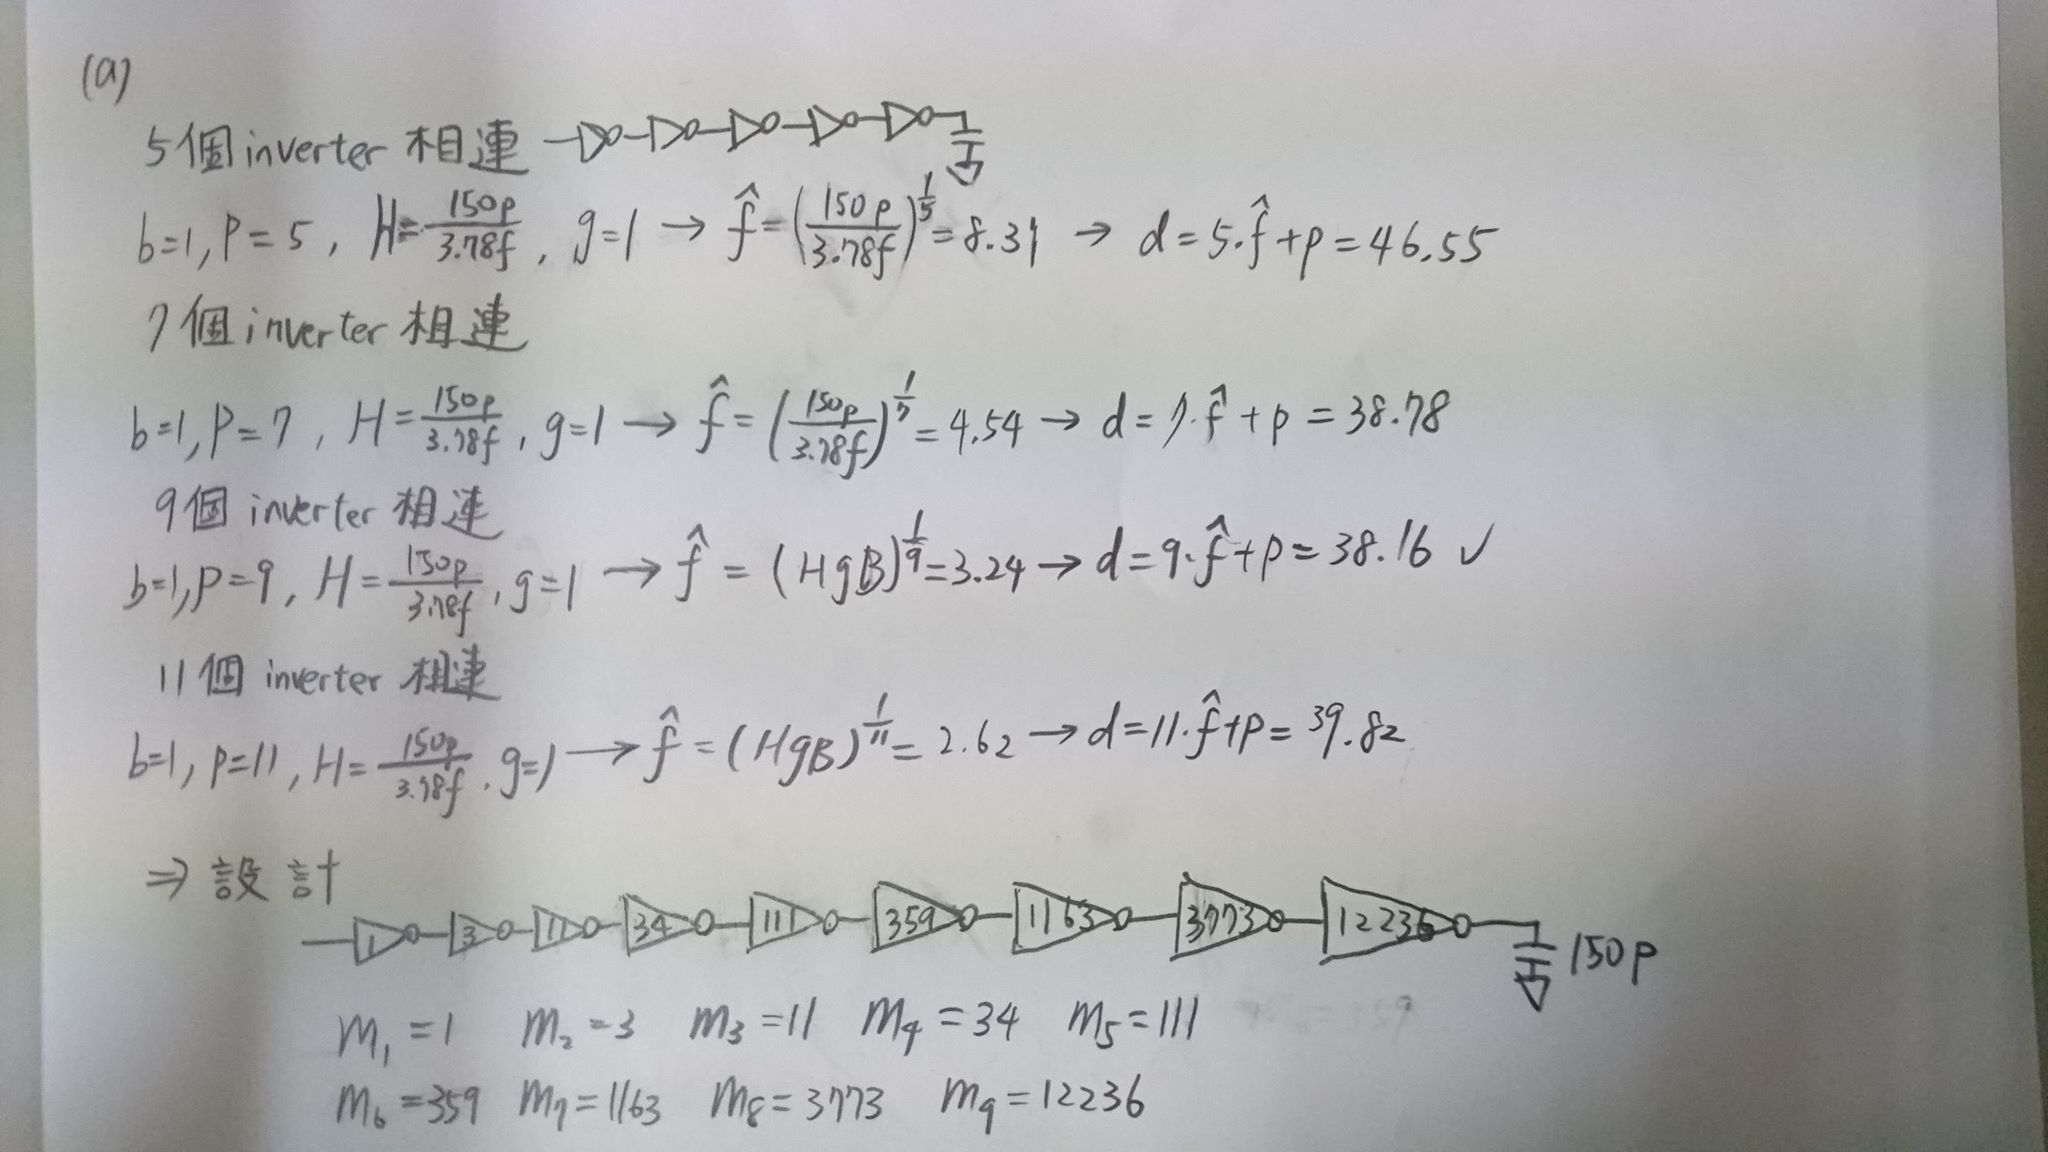 (a)
5個inverter 相連
b=1, P=5, H=150p/3.78f, g=1 → f̂=(150p/3.78f)^(1/5)=8.31 → d=5·f̂+p=46.55
7個inverter 相連
b=1, P=7, H=150p/3.78f, g=1 → f̂=(150p/3.78f)^(1/7)=4.54 → d=7·f̂+p=38.78
9個 inverter 相連
b=1, p=9, H=150p/3.78f, g=1 → f̂=(HgB)^(1/9)=3.24 → d=9·f̂+p=38.16 ✓
11個 inverter 相連
b=1, p=11, H=150p/3.78f, g=1 → f̂=(HgB)^(1/11)=2.62 → d=11·f̂+p=39.82
⇒ 設計
1 3 11 34 111 359 1163 3773 12236 150p
m₁=1 m₂=3 m₃=11 m₄=34 m₅=111
m₆=359 m₇=1163 m₈=3773 m₉=12236